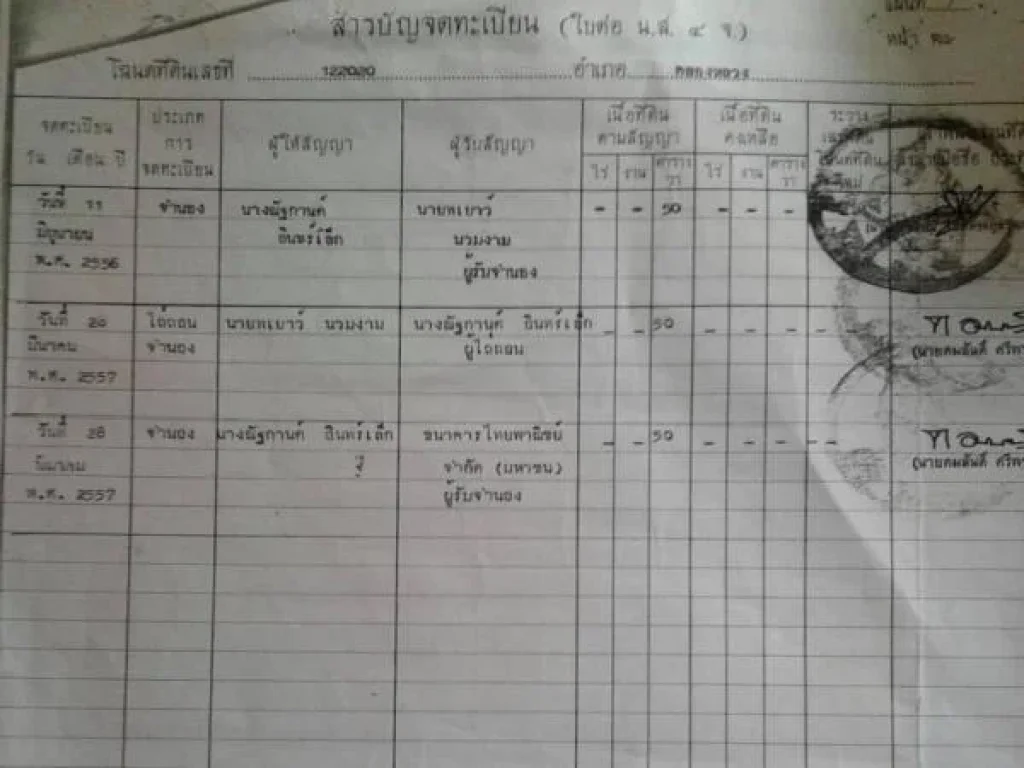 สารบัญจดทะเบียน (ใบต่อ น.ส. ๔ จ.)
แผ่นที่
หน้า
โฉนดที่ดินเลขที่ 122020 อำเภอ คลองหลวง
จดทะเบียน วัน เดือน ปี
ประเภทการจดทะเบียน
ผู้ให้สัญญา
ผู้รับสัญญา
เนื้อที่ดินตามสัญญา
เนื้อที่ดินคงเหลือ
ระวาง เลขที่ดิน โฉนดที่ดินใหม่
ไร่ งาน ตารางวา ไร่ งาน ตารางวา
วันที่ 11 จำนอง นางณัฐกานต์ นายพเยาว์ - - 50 - - -
มิถุนายน อินทร์เล็ก นวมงาม
พ.ศ. 2556 ผู้รับจำนอง
วันที่ 20 ไถ่ถอน นายพเยาว์ นวมงาม นางณัฐกานต์ อินทร์เล็ก - - 50 - - - - -
มีนาคม จำนอง ผู้ไถ่ถอน
พ.ศ. 2557
วันที่ 28 จำนอง นางณัฐกานต์ อินทร์เล็ก ธนาคารไทยพาณิชย์ - - 50 - - - - -
มีนาคม จำกัด (มหาชน)
พ.ศ. 2557 ผู้รับจำนอง